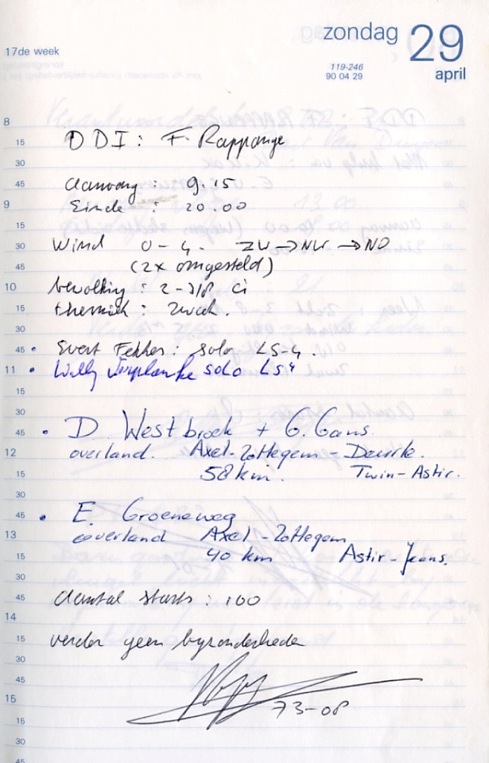 zondag 29
april
17de week
119-246
90 04 29
8
15 DDI: F. Rappange
30
45 Aanvang: 9.15
9 Einde: 20.00
15
30 Wind 0-4. ZW→NW→NO
45 (2x omgesteld)
10 bewolking: 2-3/8 Ci
15 thermiek: zwak.
30
45 • Evert Fekkes: solo LS-4.
11 • Willy solo LS4
15
30
45 • D. Westbroek + G. Gans
12 overland. Axel-Zottegem-Deurle.
15 58 km. Twin-Astir.
30
45 • E. Groeneweg
13 overland Axel-Zottegem
15 40 km Astir-Jeans.
30
45 Aantal starts: 100
14
15 verder geen byzonderheden
30
45
15 73-08
15
30
45